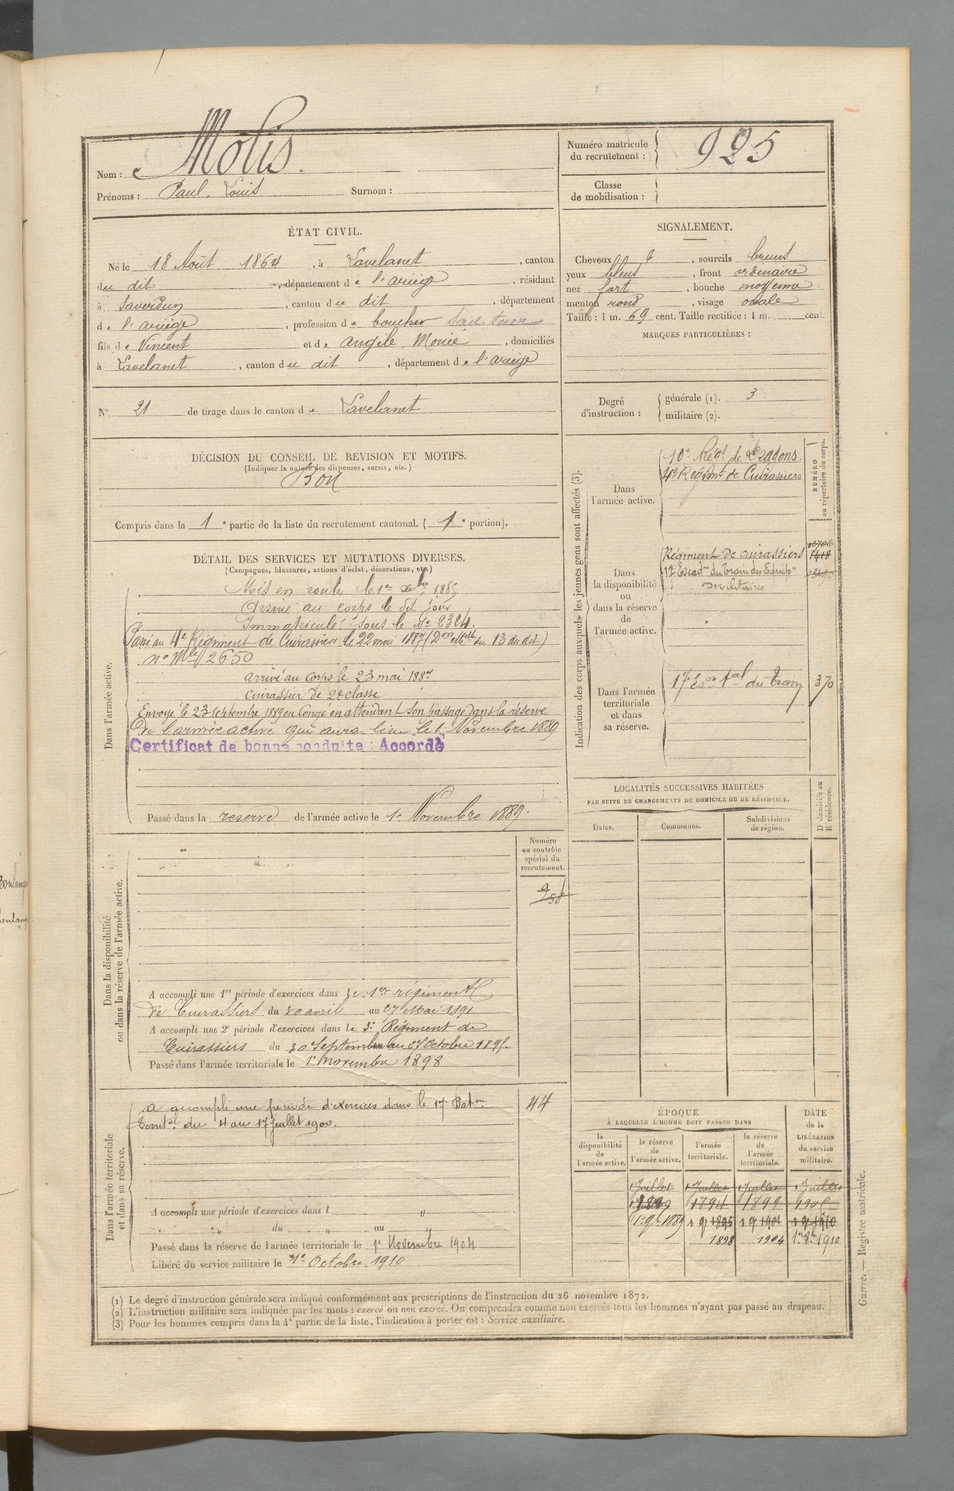 Nom : Molis.
Prénoms : Paul, Louis Surnom :
Numéro matricule du recrutement : 925
Classe de mobilisation :
ÉTAT CIVIL.
Né le 18 Août 1864, à Lavelanet, canton
du dit, département de l'ariège, résidant
à Saverdun, canton du dit, département
de l'ariège, profession de boucher
fils de Vincent et de angèle, domiciliés
à Lavelanet, canton du dit, département de l'ariège
N° 21 de tirage dans le canton de Lavelanet
SIGNALEMENT.
Cheveux, sourcils bruns
yeux bleus, front ordinaire
nez fort, bouche moyenne
menton rond, visage ovale
Taille : 1 m. 69 cent. Taille rectifiée : 1 m. cent.
MARQUES PARTICULIÈRES :
Degré d'instruction : générale (1). 3
militaire (2).
DÉCISION DU CONSEIL DE REVISION ET MOTIFS.
(Indiquer la nature des dispenses, sursis, etc.)
Bon
Compris dans la 1e partie de la liste du recrutement cantonal. (1e portion).
DÉTAIL DES SERVICES ET MUTATIONS DIVERSES.
(Campagnes, blessures, actions d'éclat, décorations, etc.)
Dans l'armée active.
Mis en route le 1er Xbre 1885
Arrivé au corps le dit jour
Immatriculé sous le N° 2324.
Passé au 4e Régiment de Cuirassiers le 22 mai 1887 (Don Melle du 13 du dit)
n° Mle 2650
arrivé au Corps le 23 mai 1887
Cuirassier de 2e classe
Envoyé le 23 septembre 1889 en Congé en attendant son passage dans la réserve
de l'armée active qui aura lieu le 1er Novembre 1889
Certificat de bonne conduite : Accordé
Passé dans la réserve de l'armée active le 1er Novembre 1889.
Indication des corps auxquels les jeunes gens sont affectés (3).
NUMÉRO au répertoire du corps.
Dans l'armée active.
10e Régt de Dragons
4e Régimt de Cuirassiers
Dans la disponibilité ou dans la réserve de l'armée active.
Régiment de cuirassiers
17e Escadon du Train des Equipes
militaires
Dans l'armée territoriale et dans sa réserve.
17e Escon tal du Train 370
LOCALITÉS SUCCESSIVES HABITÉES
PAR SUITE DE CHANGEMENTS DE DOMICILE OU DE RÉSIDENCE.
Dates. Communes. Subdivisions de région. D domicile ou R résidence.
Dans la disponibilité ou dans la réserve de l'armée active.
Numéro au contrôle spécial du recrutement.
A accompli une 1re période d'exercices dans le 1er régiment
de Cuirassiers du 30 avril au 27 Mai 1891
A accompli une 2e période d'exercices dans le 3e Régiment de
Cuirassiers du 30 Septembre au 27 Octobre 1895.
Passé dans l'armée territoriale le 1er novembre 1898
Dans l'armée territoriale et dans sa réserve.
A accompli une période d'exercices dans le 17 Baton
Territal du 4 au 17 juillet 1900. 44
A accompli une période d'exercices dans l "
" du " au "
Passé dans la réserve de l'armée territoriale le 1er Novembre 1904
Libéré du service militaire le 1er Octobre 1910
ÉPOQUE
À LAQUELLE L'HOMME DOIT PASSER DANS
la disponibilité de l'armée active. la réserve de l'armée active. l'armée territoriale. la réserve de l'armée territoriale.
DATE de la LIBÉRATION du service militaire.
1 Juillet 1 Juillet 1 Juillet 1 Juillet
1889 1894 1899
1898 1904 1er 8bre 1910
(1) Le degré d'instruction générale sera indiqué conformément aux prescriptions de l'instruction du 26 novembre 1872.
(2) L'instruction militaire sera indiquée par les mots : exercé ou non exercé. On comprendra comme non exercés tous les hommes n'ayant pas passé au drapeau.
(3) Pour les hommes compris dans la 4e partie de la liste, l'indication à porter est : Service auxiliaire.
Guerre. — Registre matricule.